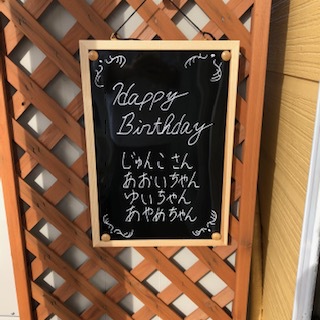 Happy
Birthday
じゅんこさん
あおいちゃん
ゆいちゃん
あやめちゃん